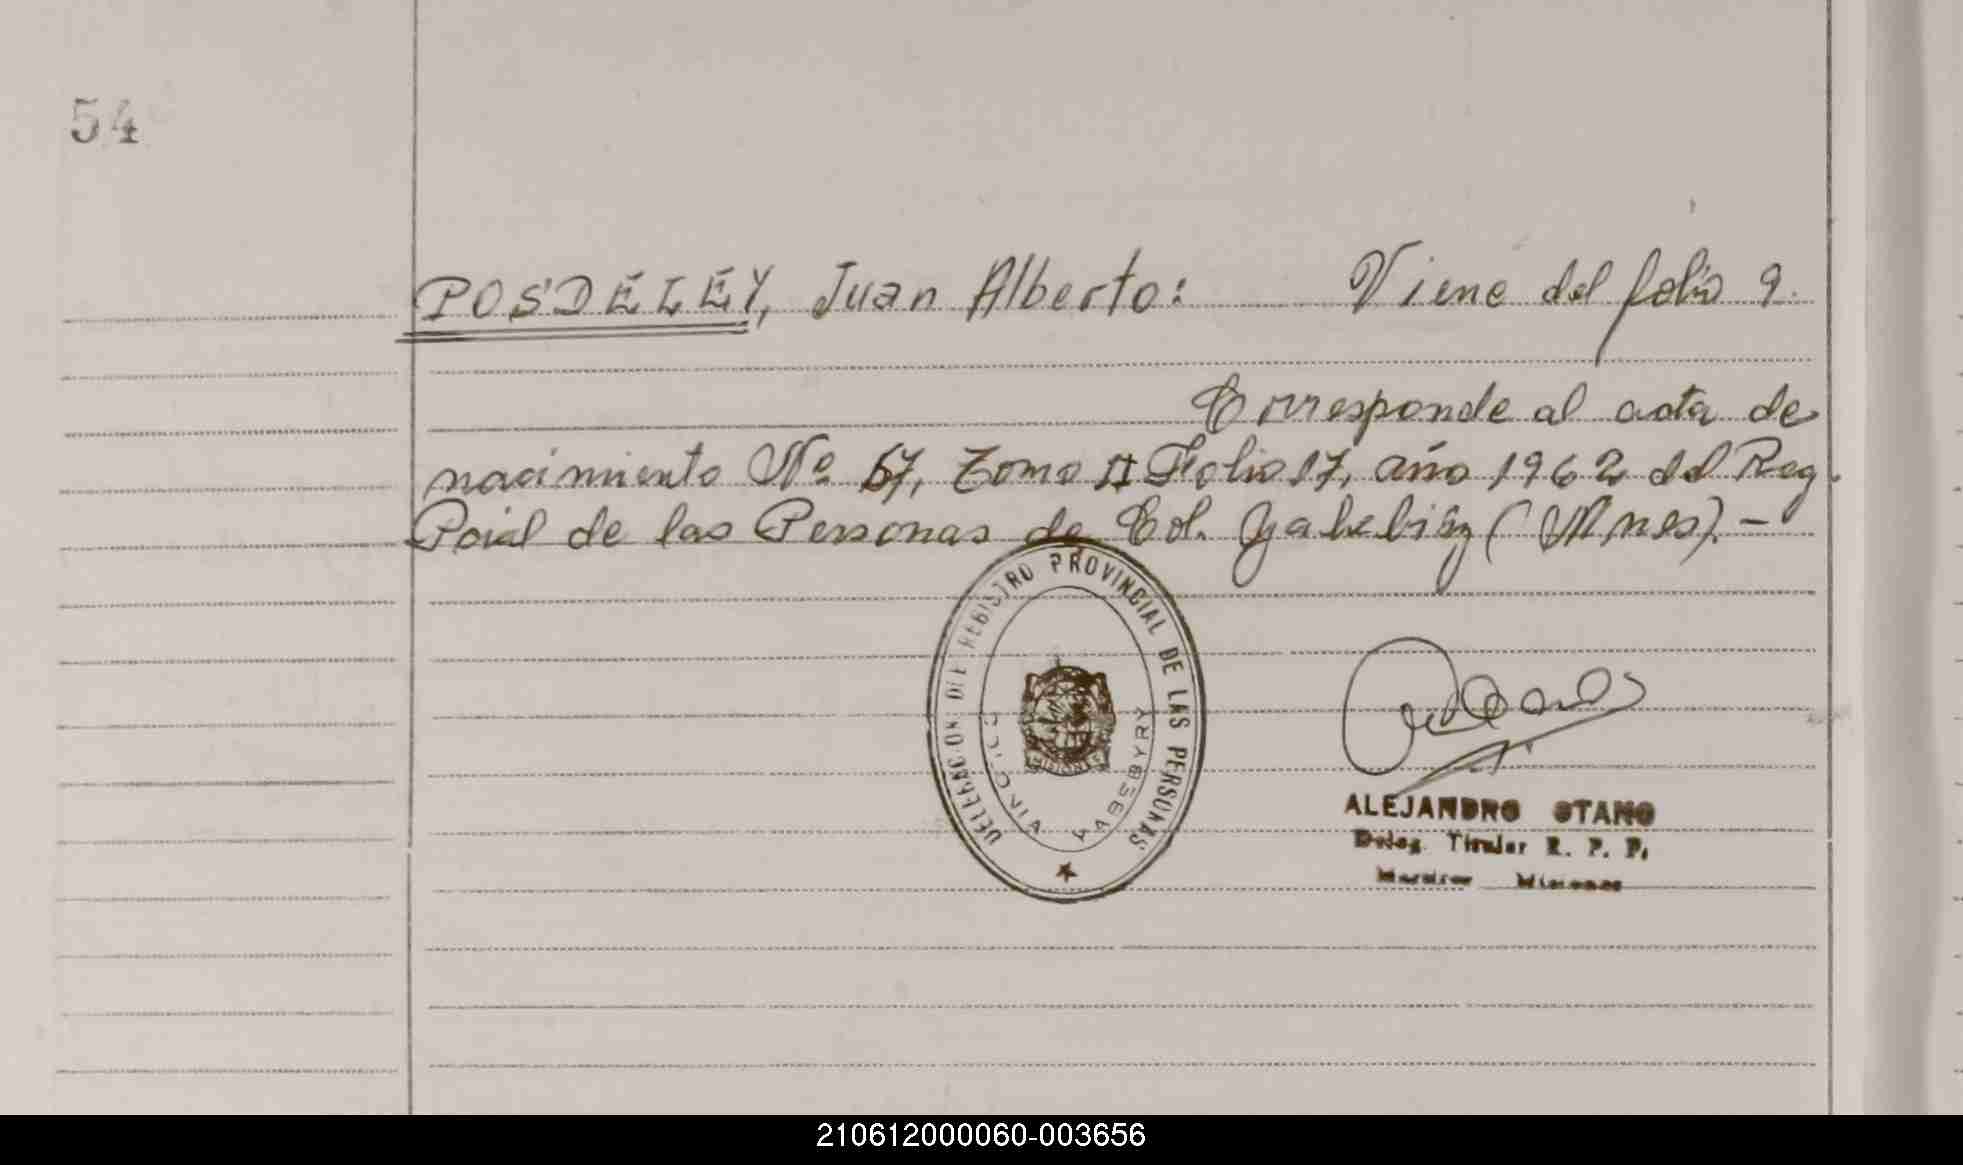 54
POSDELEY, Juan Alberto: Viene del folio 9.
Corresponde al acta de
nacimiento Nº 67, Tomo II Folio 17, año 1962 del Reg.
Pcial de las Personas de Col. Yabebiry (Mnes). -
DELEGACION DEL REGISTRO PROVINCIAL DE LAS PERSONAS
COLONIA YABEBYRY
MISIONES
ALEJANDRO OTANO
Deleg. Titular R. P. P.
Misiones
210612000060-003656